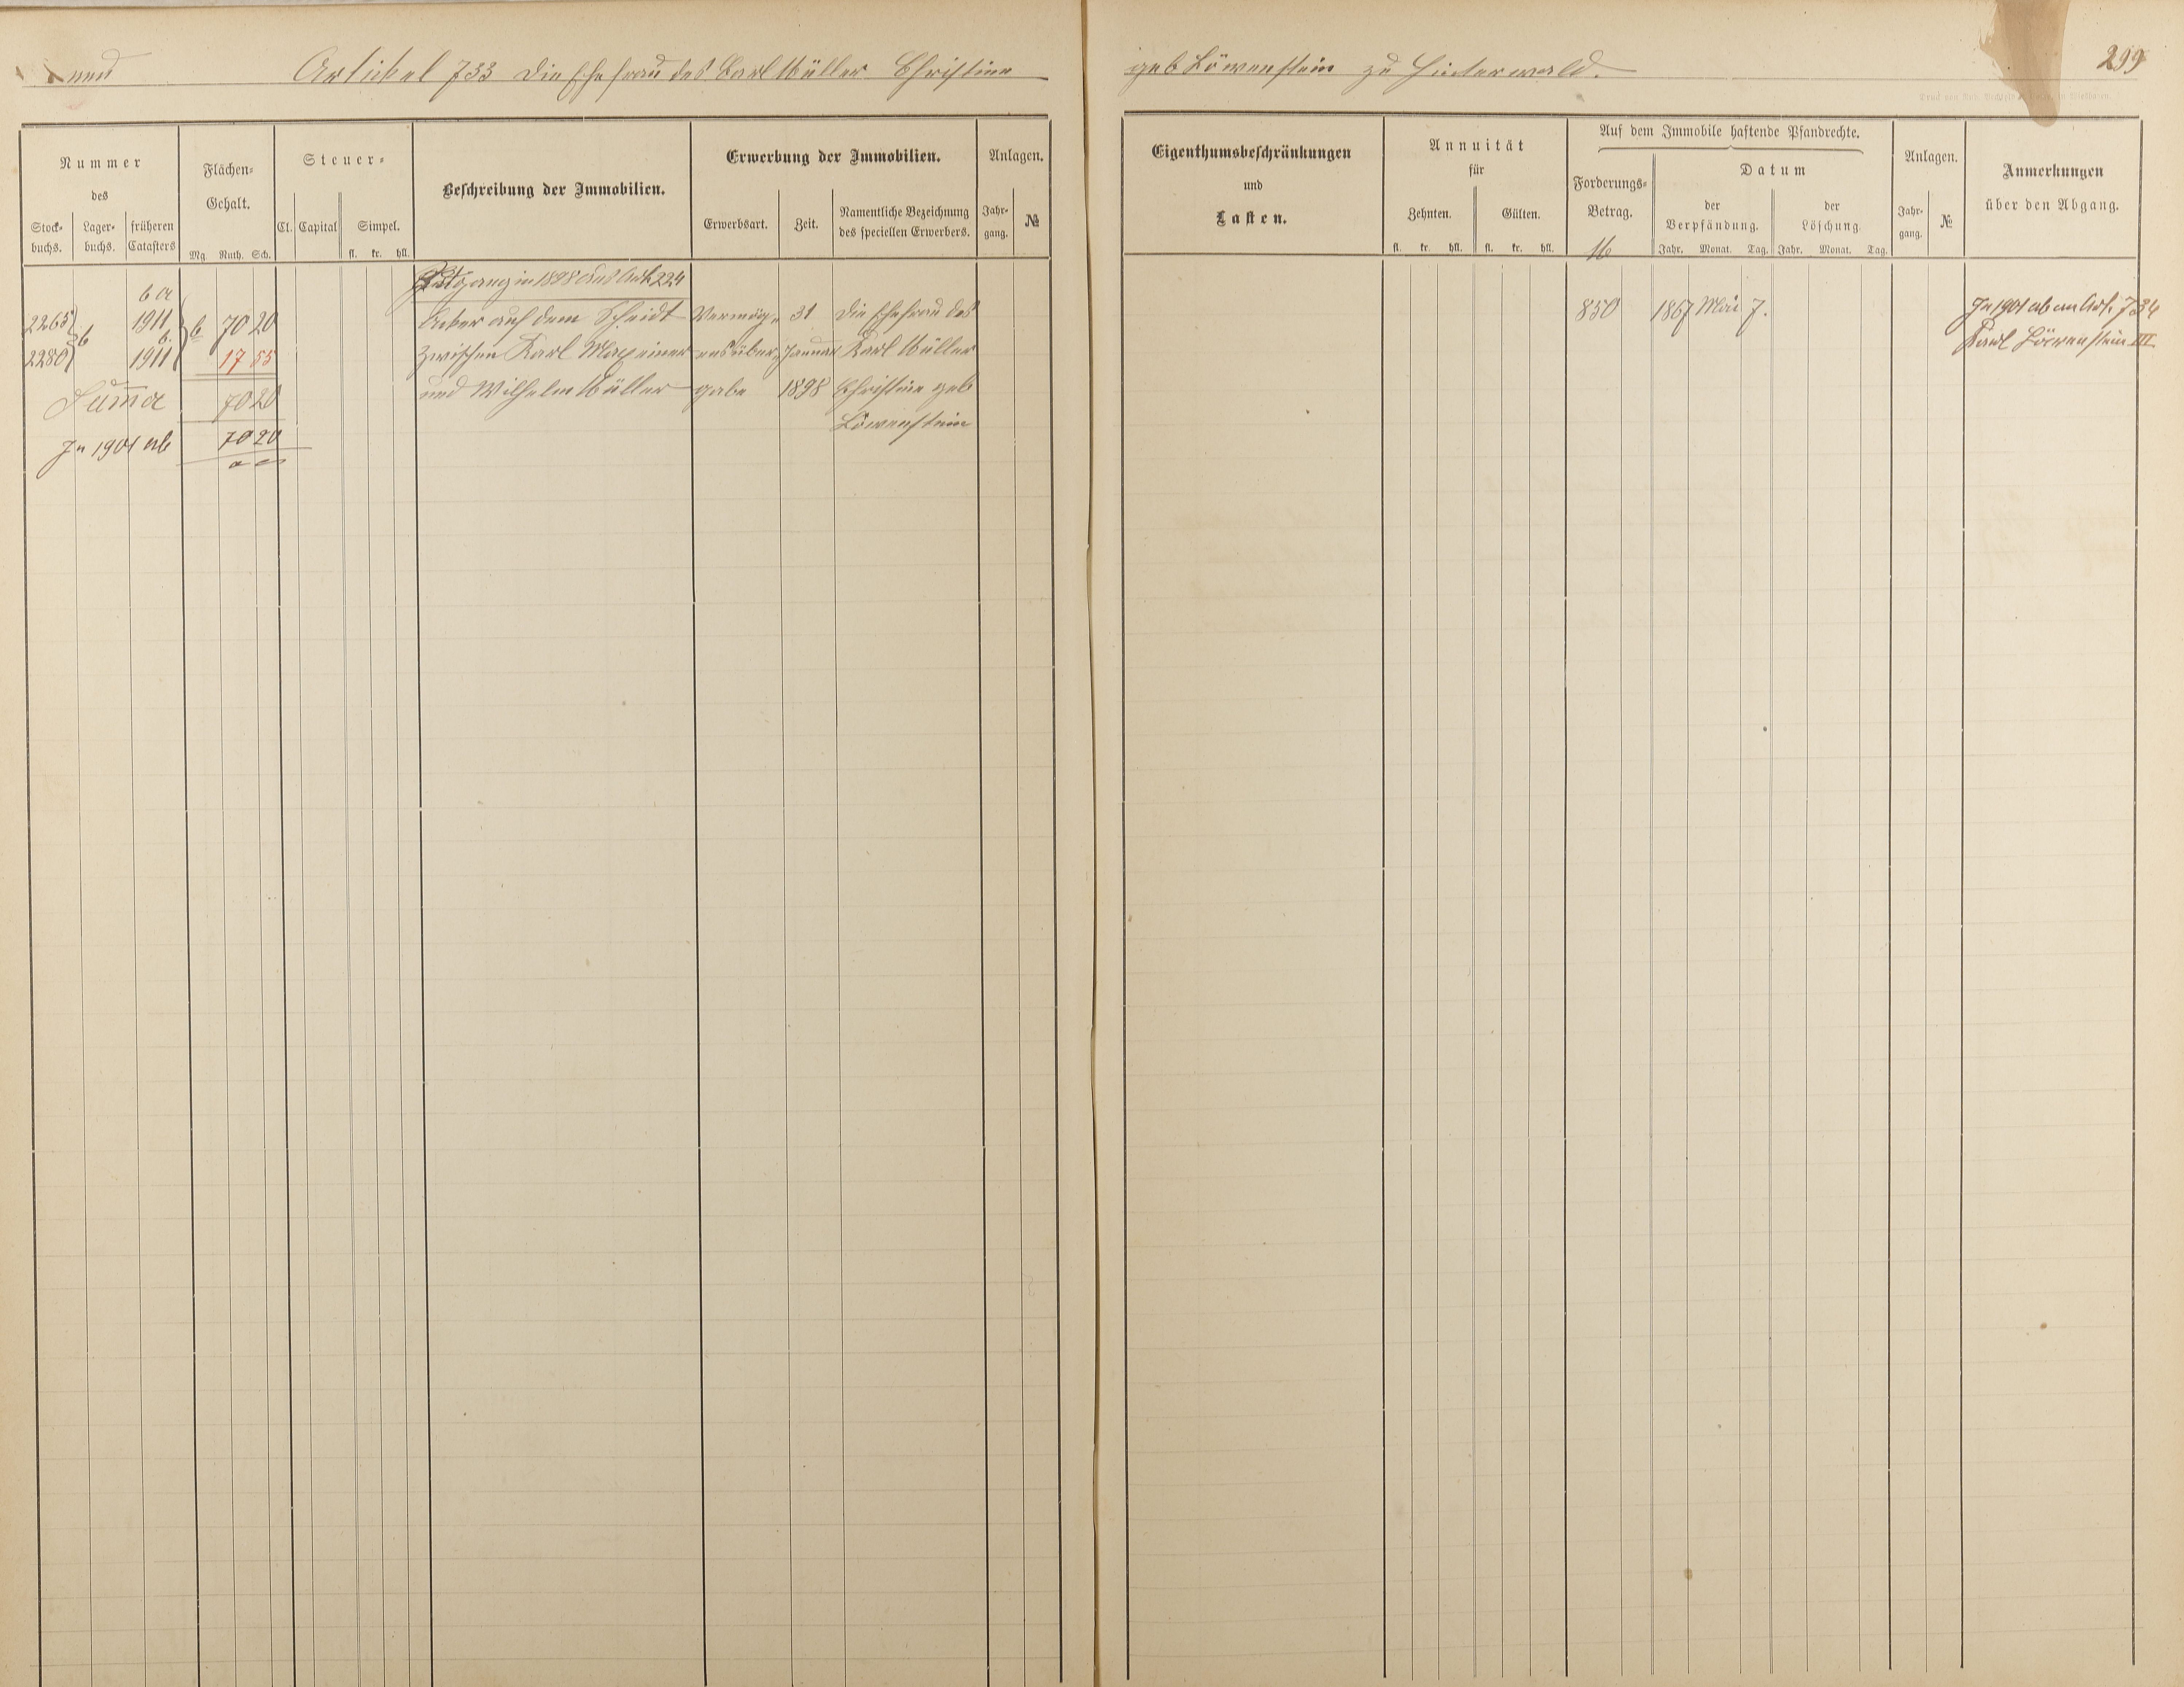 Artikel 733 die Ehefrau des Carl Müller Christine geb Löwenstein zu Hinterwald.
299
Nummer
des
Stock-
buchs.
Lager-
buchs.
früheren
Catasters
Flächen-
Gehalt.
Mg. Ruth. Sch.
Steuer-
Cl. Capital
Simpel.
fl. kr. hll.
Beschreibung der Immobilien.
Erwerbung der Immobilien.
Erwerbsart.
Zeit.
Namentliche Bezeichnung
des speciellen Erwerbers.
Anlagen.
Jahr-
gang.
№
Eigenthumsbeschränkungen
und
Lasten.
Annuität
für
Zehnten.
Gülten.
fl. kr. hll. fl. kr. hll.
Auf dem Immobile haftende Pfandrechte.
Forderungs-
Betrag.
Datum
der
Verpfändung.
der
Löschung.
Jahr. Monat. Tag. Jahr. Monat. Tag.
Anlagen.
Jahr-
gang.
№
Anmerkungen
über den Abgang.
in 1898 aus Art. 224
6 a
2265 1911 70 20
Acker auf dem Scheidt
Vermög-
31
die Ehefrau des
850 1867 Mai 7.
In 1901 ab an Art. 734
2280 1911 17 55
zwischen Karl Mayeiner
ensüber-
Januar
Karl Müller
Karl Löwenstein III
Suma 70 20
und Wilhelm Müller
gabe
1898
Christine geb
Löwenstein
In 1901 ab 70 20